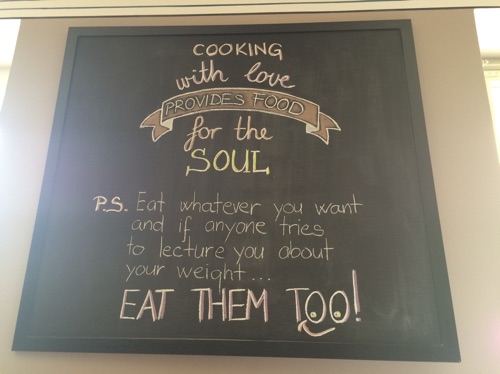 COOKING
with love
PROVIDES FOOD
for the
SOUL
P.S. Eat whatever you want
and if anyone tries
to lecture you about
your weight...
EAT THEM TOO!